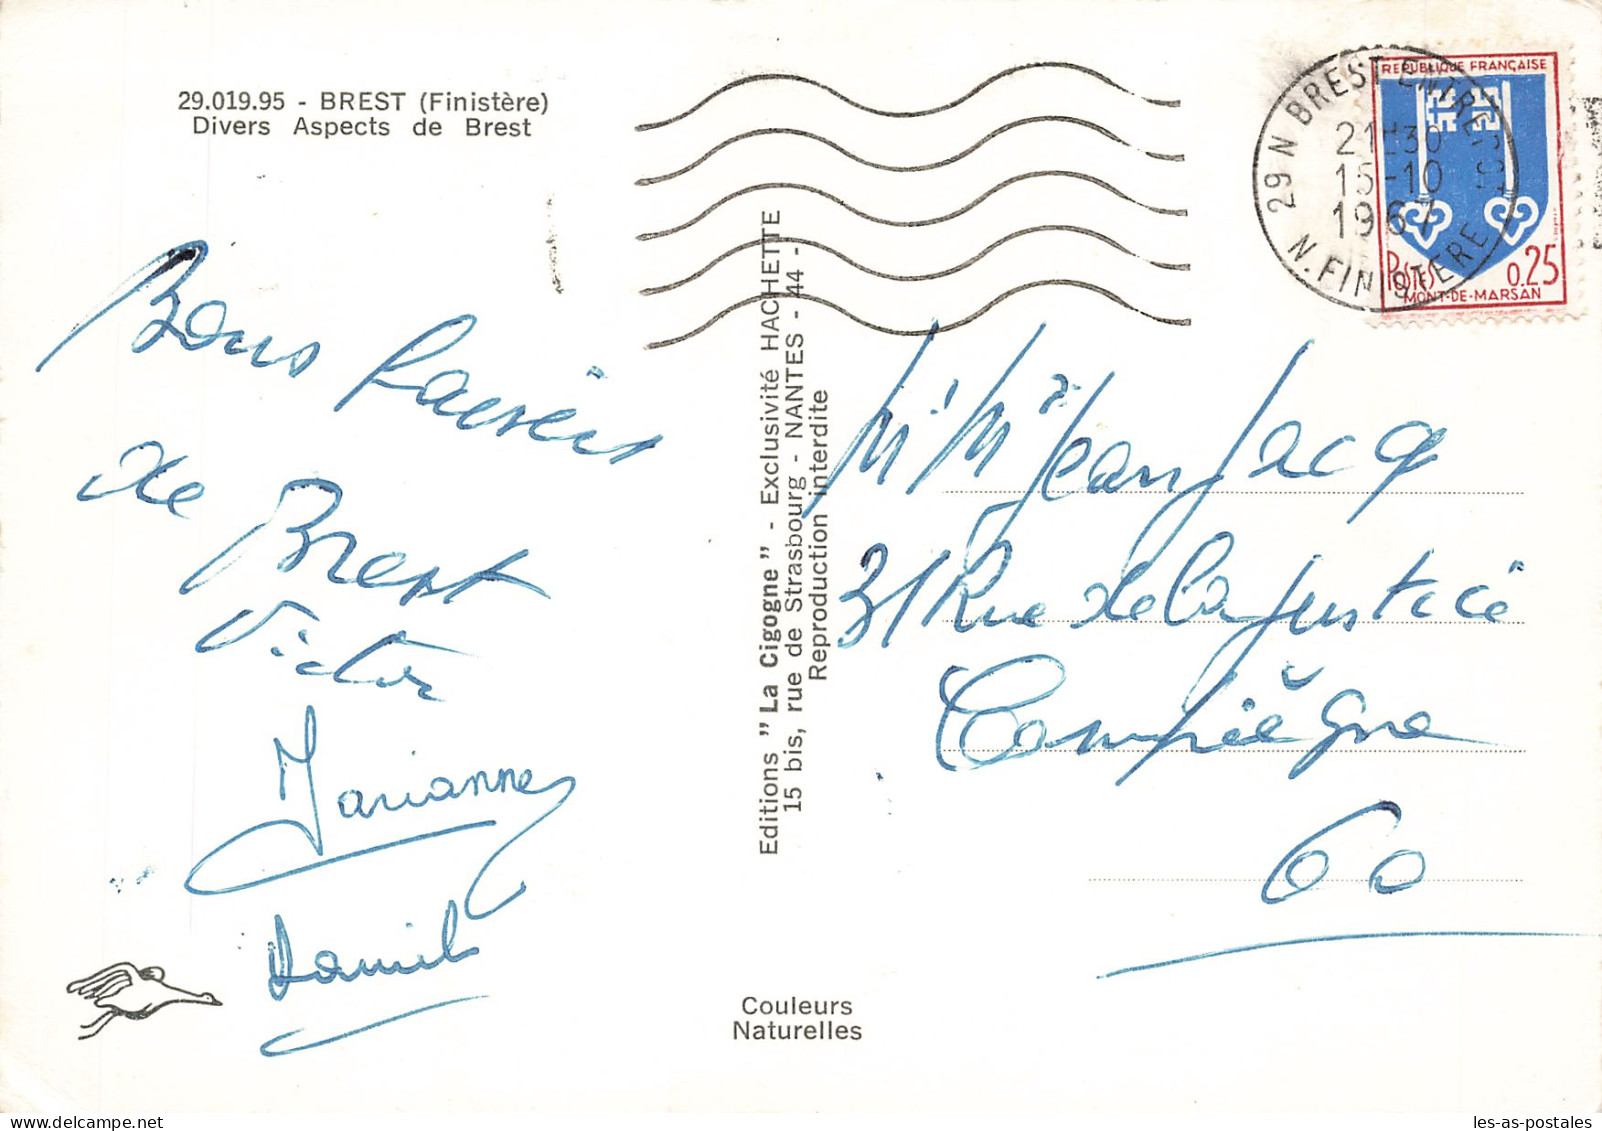 29.019.95 - BREST (Finistère)
Divers Aspects de Brest
Bons baisers
de
Brest
Victor
Marianne
Daniel
Editions "La Cigogne" - Exclusivité HACHETTE
15 bis, rue de Strasbourg - NANTES - 44 -
Reproduction interdite
Couleurs
Naturelles
29 N BREST ENTREPOT
21H30
15-10
1967
N. FINISTERE
REPUBLIQUE FRANÇAISE
POSTES
0.25
MONT-DE-MARSAN
Mr Mme Jean Jacq
31 Rue de la Justice
Compiègne
60
les-as-postales